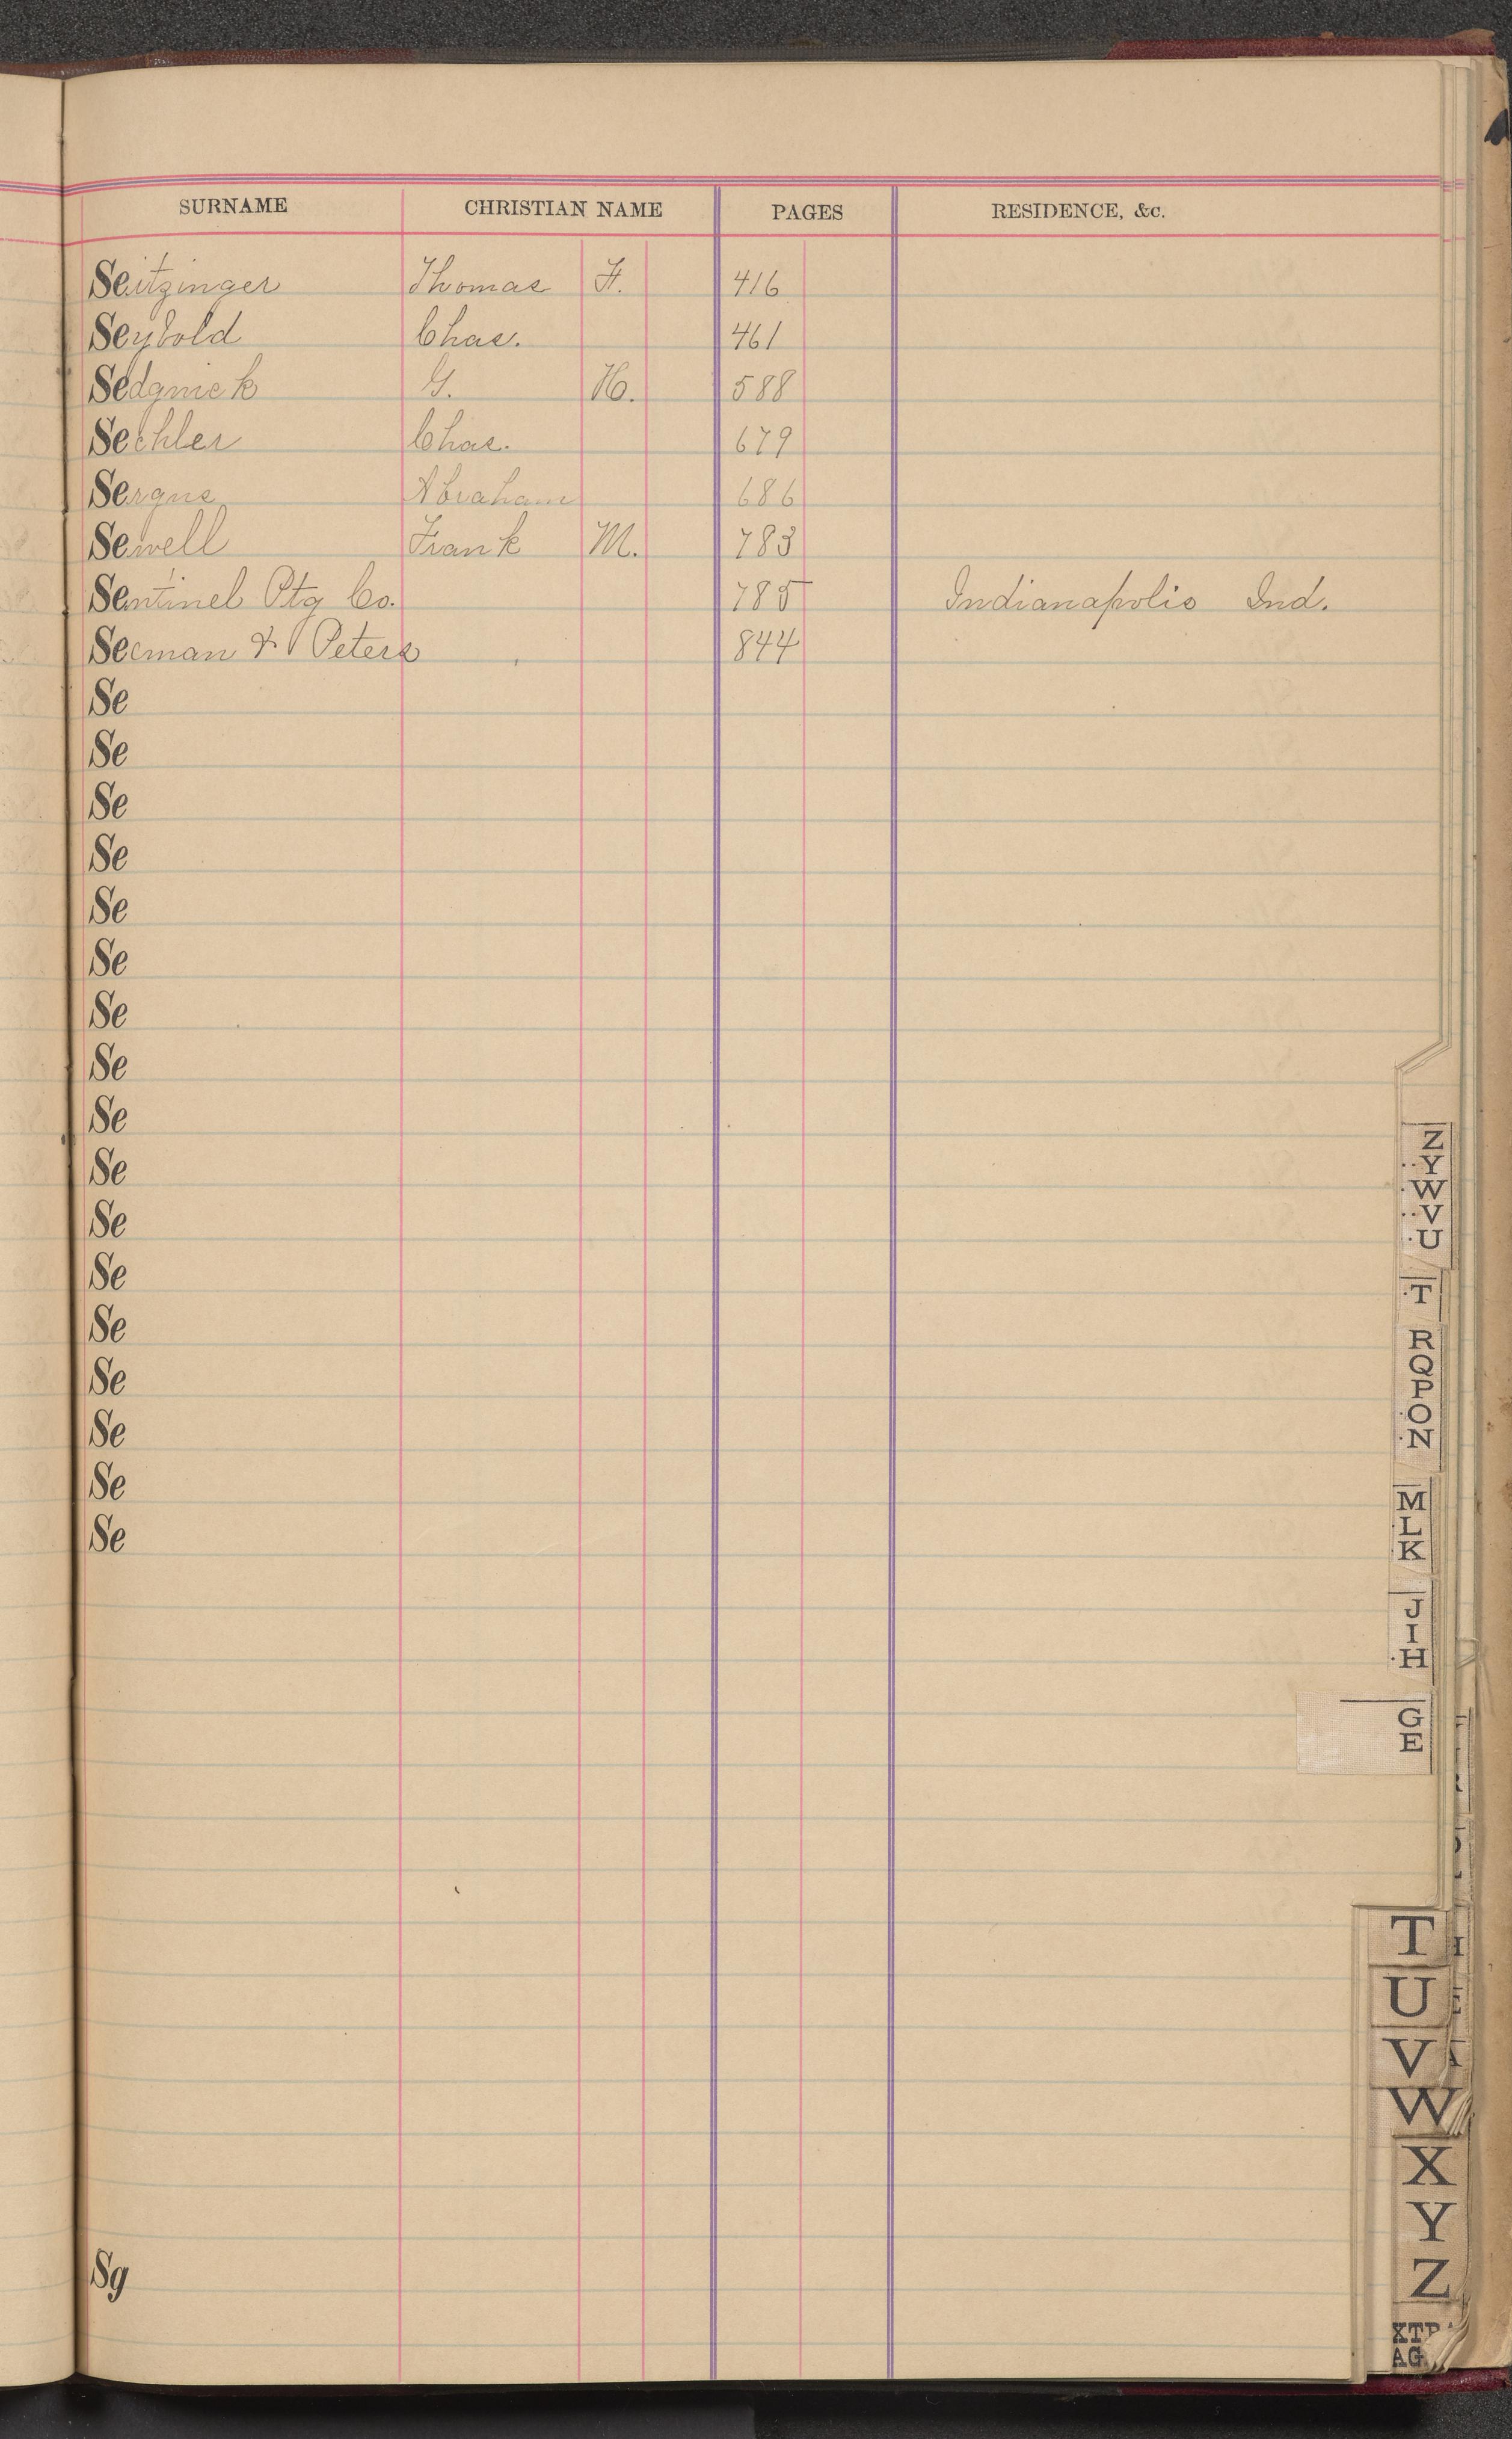 SURNAME CHRISTIAN NAME PAGES RESIDENCE, &c.
Seitzinger Thomas F. 416
Seybold Chas. 461
Sedgwick G. H. 588
Sechler Chas. 679
Abraham 686
Sewell Frank M. 783
Sentinel Ptg Co. 785 Indianapolis Ind.
Seeman & Peters 844
Se
Se
Se
Se
Se
Se
Se
Se
Se
Se
Se
Se
Se
Se
Se
Se
Se
Sg
Z
Y
W
V
U
T
R
Q
P
O
N
M
L
K
J
I
H
G
E
T
U
V
W
X
Y
Z